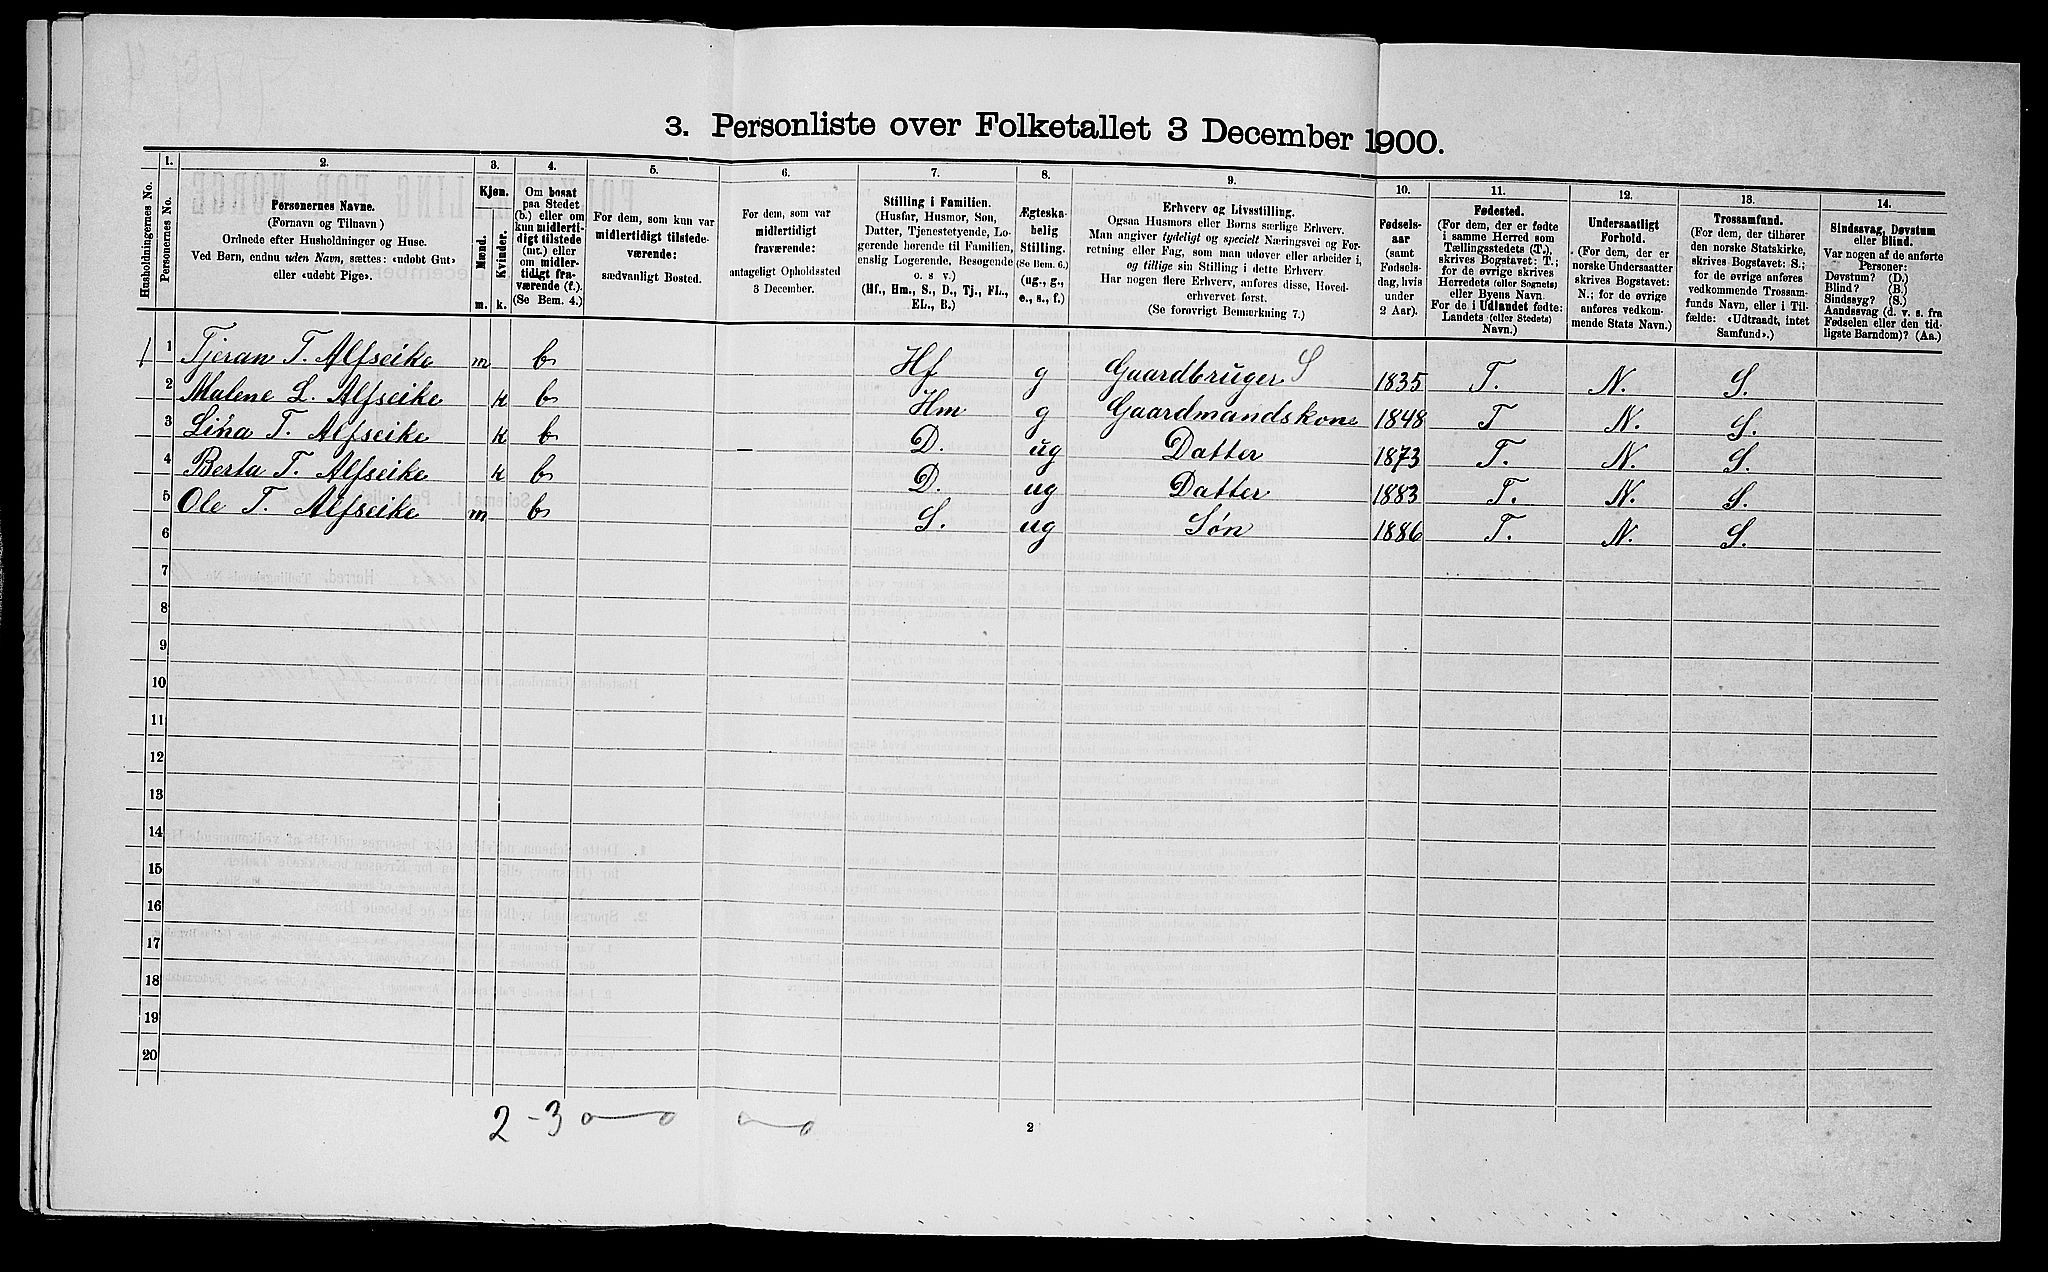 3. Personliste over Folketallet 3 December 1900.
1. 2. 3. 4. 5. 6. 7. 8. 9. 10. 11. 12. 13. 14.
Husholdningernes No.
Personernes No.
Personernes Navne.
(Fornavn og Tilnavn)
Ordnede efter Husholdninger og Huse.
Ved Børn, endnu uden Navn, sættes: «udøbt Gut»
eller «udøbt Pige».
Kjøn.
Mænd.
Kvinder.
m. k.
Om bosat
paa Stedet
(b.) eller om
kun midlerti-
digt tilstede
(mt.) eller
om midler-
tidigt fra-
værende (f.).
(Se Bem. 4.)
For dem, som kun var
midlertidigt tilstede-
værende:
sædvanligt Bosted.
For dem, som var
midlertidigt
fraværende:
antageligt Opholdssted
3 December.
Stilling i Familien.
(Husfar, Husmor, Søn,
Datter, Tjenestetyende, Lo-
gerende hørende til Familien,
enslig Logerende, Besøgende
o. s v.)
(Hf., Hm., S., D., Tj., FL.,
EL., B.)
Ægteska-
belig
Stilling.
(Se Bem. 6.)
(ug., g.,
e., s., f.)
Erhverv og Livsstilling.
Ogsaa Husmors eller Børns særlige Erhverv.
Man angiver tydeligt og specielt Næringsvei og For-
retning eller Fag, som man udøver eller arbeider i,
og tillige sin Stilling i dette Erhverv.
Har nogen flere Erhverv, anføres disse, Hoved-
erhvervet først.
(Se forøvrigt Bemærkning 7.)
Fødsels-
aar
(samt
Fødsels-
dag, hvis
under
2 Aar).
Fødested.
(For dem, der er fødte
i samme Herred som
Tællingsstedets (T.),
skrives Bogstavet: T.;
for de øvrige skrives
Herredets (eller Sognets)
eller Byens Navn.
For de i Udlandet fødte:
Landets (eller Stedets)
Navn.)
Undersaatligt
Forhold.
(For dem, der er
norske Undersaatter
skrives Bogstavet:
N.; for de øvrige
anføres vedkom-
mende Stats Navn.)
Trossamfund.
(For dem, der tilhører
den norske Statskirke,
skrives Bogstavet: S.;
for de øvrige anføres
vedkommende Trossam-
funds Navn, eller i Til-
fælde: «Udtraadt, intet
Samfund».)
Sindssvag, Døvstum
eller Blind.
Var nogen af de anførte
Personer:
Døvstum? (D.)
Blind? (B.)
Sindssyg? (S.)
Aandssvag (d. v. s. fra
Fødselen eller den tid-
ligste Barndom)? (Aa.)
1 Tjeran T. Alfseike m b Hf g Gaardbruger S 1835 T. N. S.
2 Malene L. Alfseike k b Hm g Gaardmandskone 1848 T N. S.
3 Lina T. Alfseike k b D. ug Datter 1873 T. N. S.
4 Berta T. Alfseike k b D. ug Datter 1883 T. N. S.
5 Ole T. Alfseike m b S. ug Søn 1886 T. N. S.
6
7
8
9
10
11
12
13
14
15
16
17
18
19
20
2-3
2